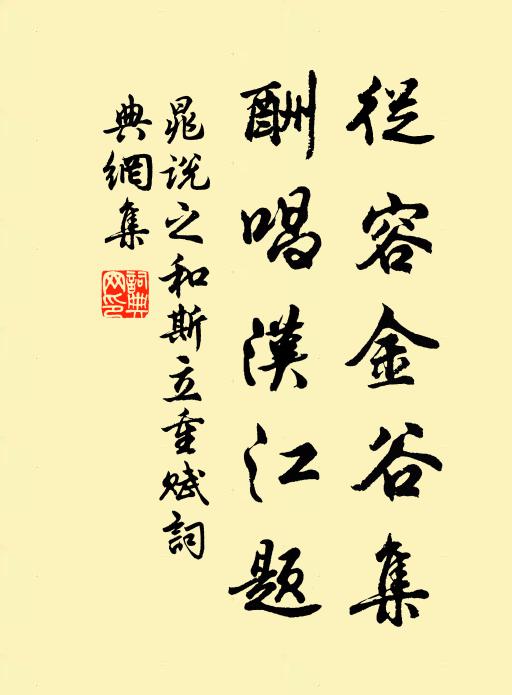 從容金谷集
酬唱漢江題
晁說之和斯立重賦詞
典網集
詞典網印